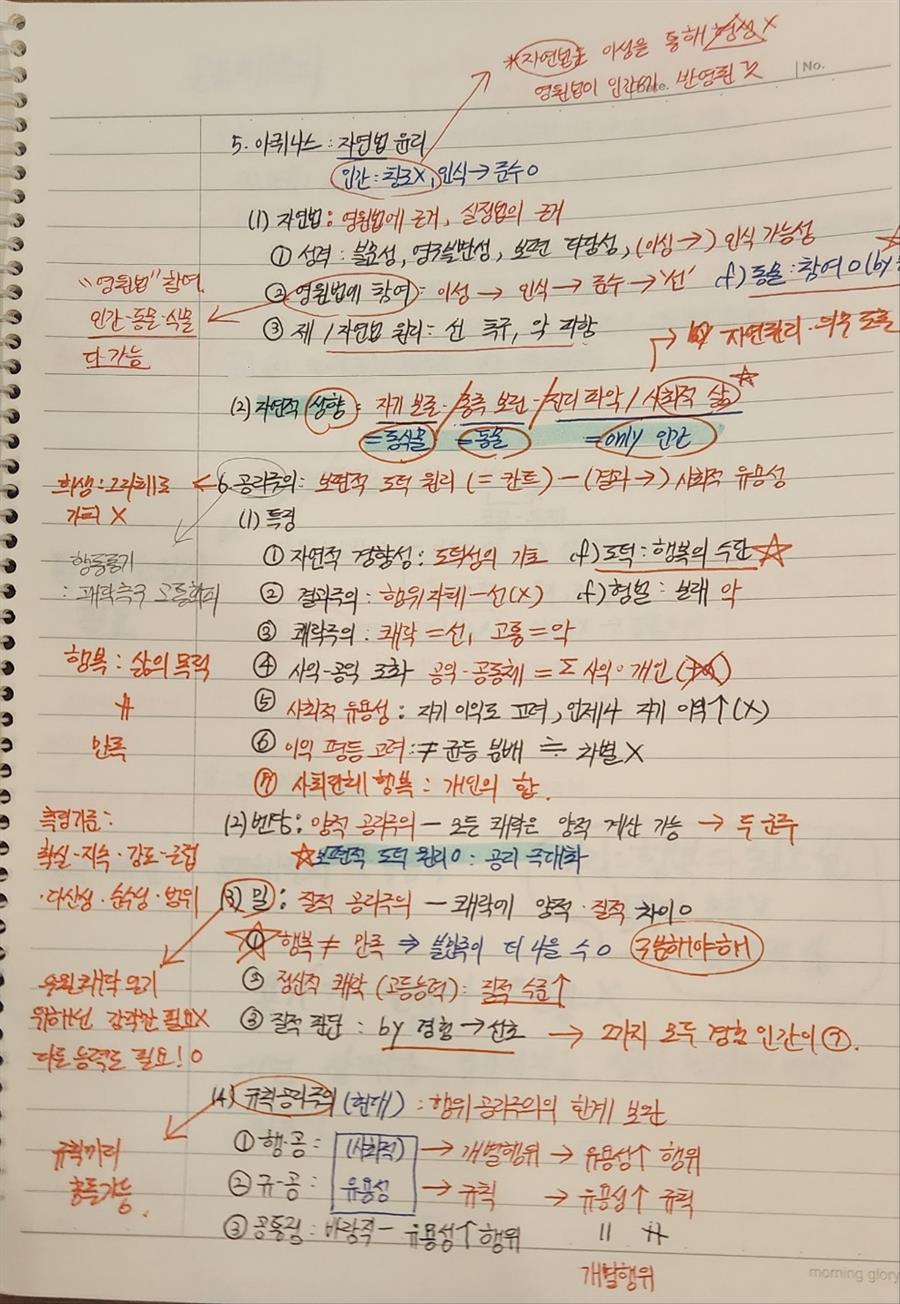 *자연법은 이성을 통해 형성 X
영원법이 인간에 반영된 것
No.
5. 아퀴나스 : 자연법 윤리
인간 : 창조X, 인식 → 준수 O
(1) 자연법 : 영원법에 근거, 실정법의 근거
① 성격 : 불변성, 영구불변성, 보편 타당성, (이성→) 인식 가능성
② 영원법에 참여 : 이성 → 인식 → 준수 → '선' cf) 동물 : 참여 O (by
"영원법" 참여
인간·동물·식물
다 가능
③ 제 1 자연법 원리 : 선 추구, 악 피함
→ 자연원리·의무 도출
(2) 자연적 성향 : 자기 보존 / 종족 보전 / 진리 파악 / 사회적 삶 ☆
= 동식물 = 동물 = only 인간
6. 공리주의 : 보편적 도덕 원리 (= 칸트) - (결과 →) 사회적 유용성
희생 : 그 자체로
가치 X
(1) 특징
① 자연적 경향성 : 도덕성의 기초 cf) 도덕 : 행복의 수단 ☆
행동동기
: 쾌락추구 고통회피
② 결과주의 : 행위 자체 - 선(X) cf) 형벌 : 본래 악
③ 쾌락주의 : 쾌락 = 선, 고통 = 악
④ 사익-공익 조화 공익·공동체 = Σ 사익·개인
행복 : 삶의 목적
⑤ 사회적 유용성 : 자기 이익도 고려, 언제나 자기 이익↑(X)
≠
만족
⑥ 이익 평등 고려 : ≠ 균등 분배 ≒ 차별 X
⑦ 사회전체 행복 : 개인의 합.
(2) 벤담 : 양적 공리주의 - 모든 쾌락은 양적 계산 가능 → 두 군주
☆보편적 도덕 원리 O : 공리 극대화
측정기준 :
확실·지속·강도·근접
·다산성·순수성·범위
(3) 밀 : 질적 공리주의 - 쾌락에 양적·질적 차이 O
☆① 행복 ≠ 만족 ⇒ 불만족이 더 나을 수 O 구분해야해
② 정신적 쾌락 (고등능력) : 질적 수준↑
③ 질적 판단 : by 경험 → 선호 → 2가지 모두 경험 인간이 ⑦.
쾌락 얻기
위해선 감각만 필요X
다른 능력도 필요! O
(4) 규칙공리주의 (현대) : 행위 공리주의의 한계 보완
① 행·공 : (사회적) → 개별행위 → 유용성↑ 행위
② 규·공 : 유용성 → 규칙 → 유용성↑ 규칙
규칙끼리
충돌가능.
③ 공통점 : 바람직 - 유용성↑ 행위
= ≠
개별행위
morning glory